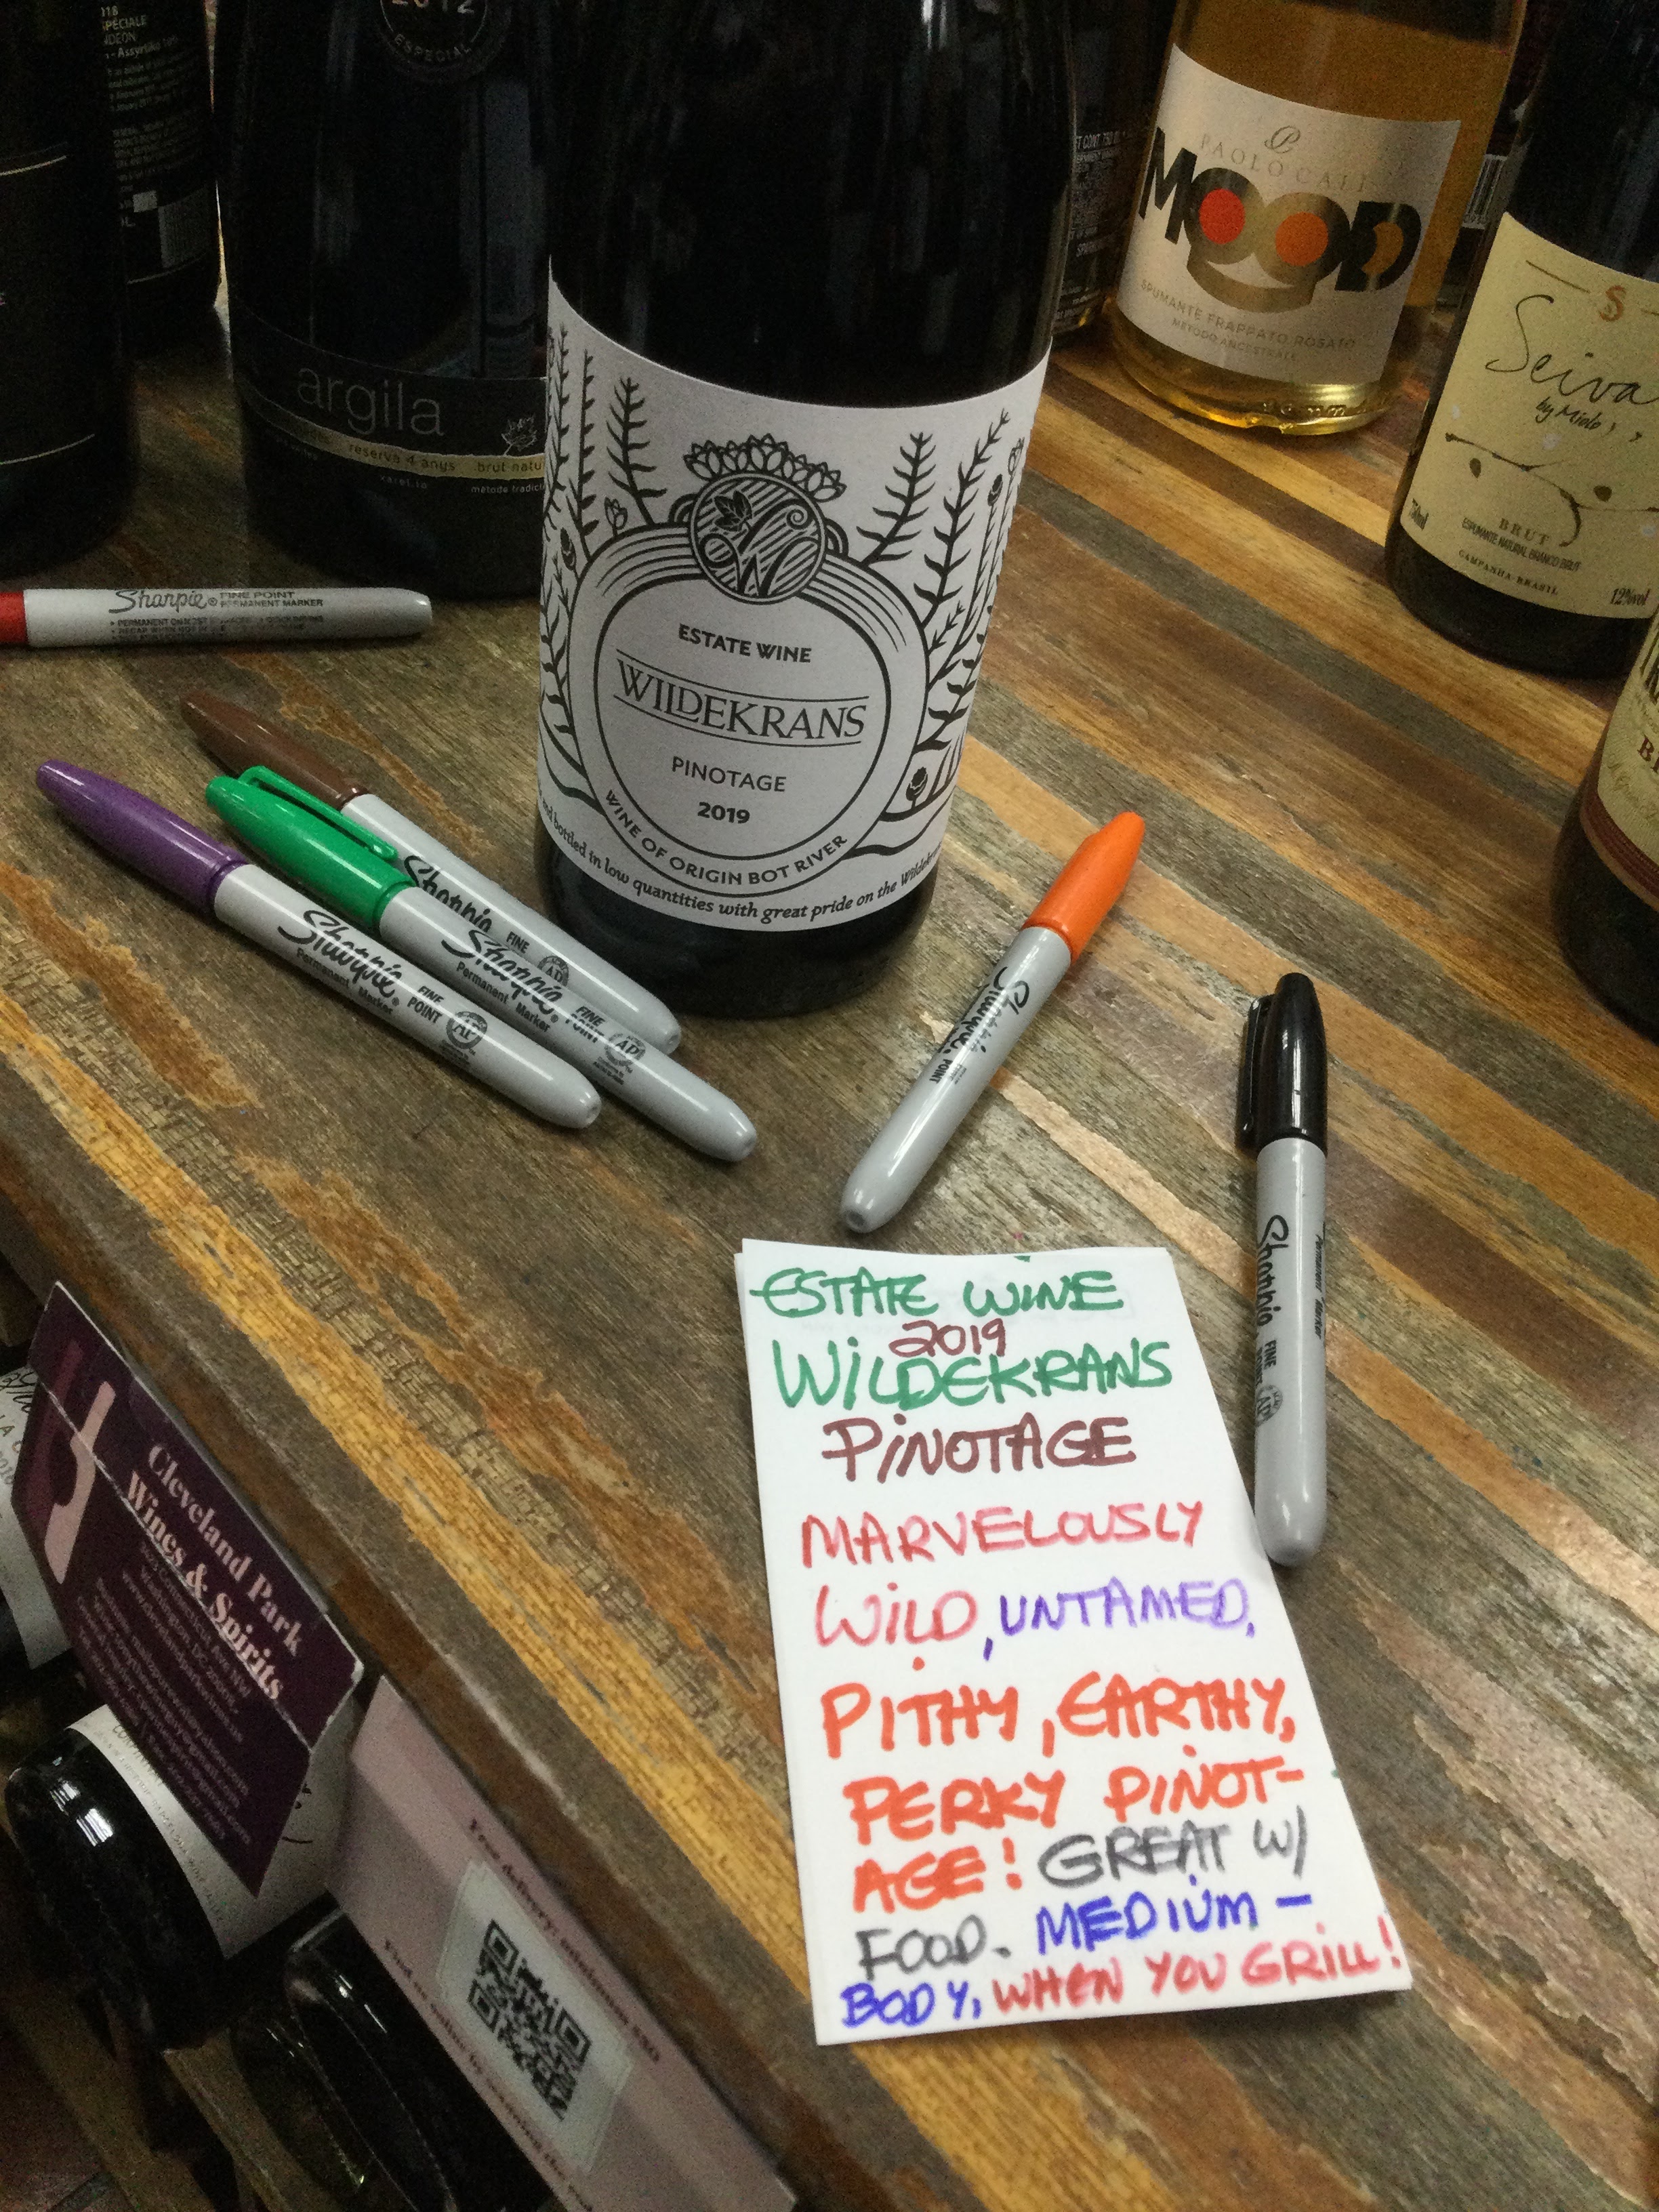 2012
ESPECIAL
argila
reserva 4 anys brut natu
xarel.lo
PAOLO CALI
MOOD
SPUMANTE FRAPPATO ROSATO
METODO ANCESTRALE
S
Seiva
by Miolo
BRUT
ESPUMANTE NATURAL BRANCO BRUT
CAMPANHA-BRASIL
750ml
12%vol
W
ESTATE WINE
WILDEKRANS
PINOTAGE
2019
WINE OF ORIGIN BOT RIVER
and bottled in low quantities with great pride on the Wildekr
Sharpie® FINE POINT
PERMANENT MARKER
Sharpie FINE
AP
Sharpie FINE POINT
Permanent Marker
AP
Sharpie® FINE POINT
Permanent Marker
AP
Sharpie POINT
Sharpie FINE
Permanent Marker
AP
ESTATE WINE
2019
WILDEKRANS
PINOTAGE
MARVELOUSLY
WILD, UNTAMED,
PITHY, EARTHY,
PERKY PINOT-
AGE! GREAT W/
FOOD. MEDIUM -
BODY, WHEN YOU GRILL!
Cleveland Park
Wines & Spirits